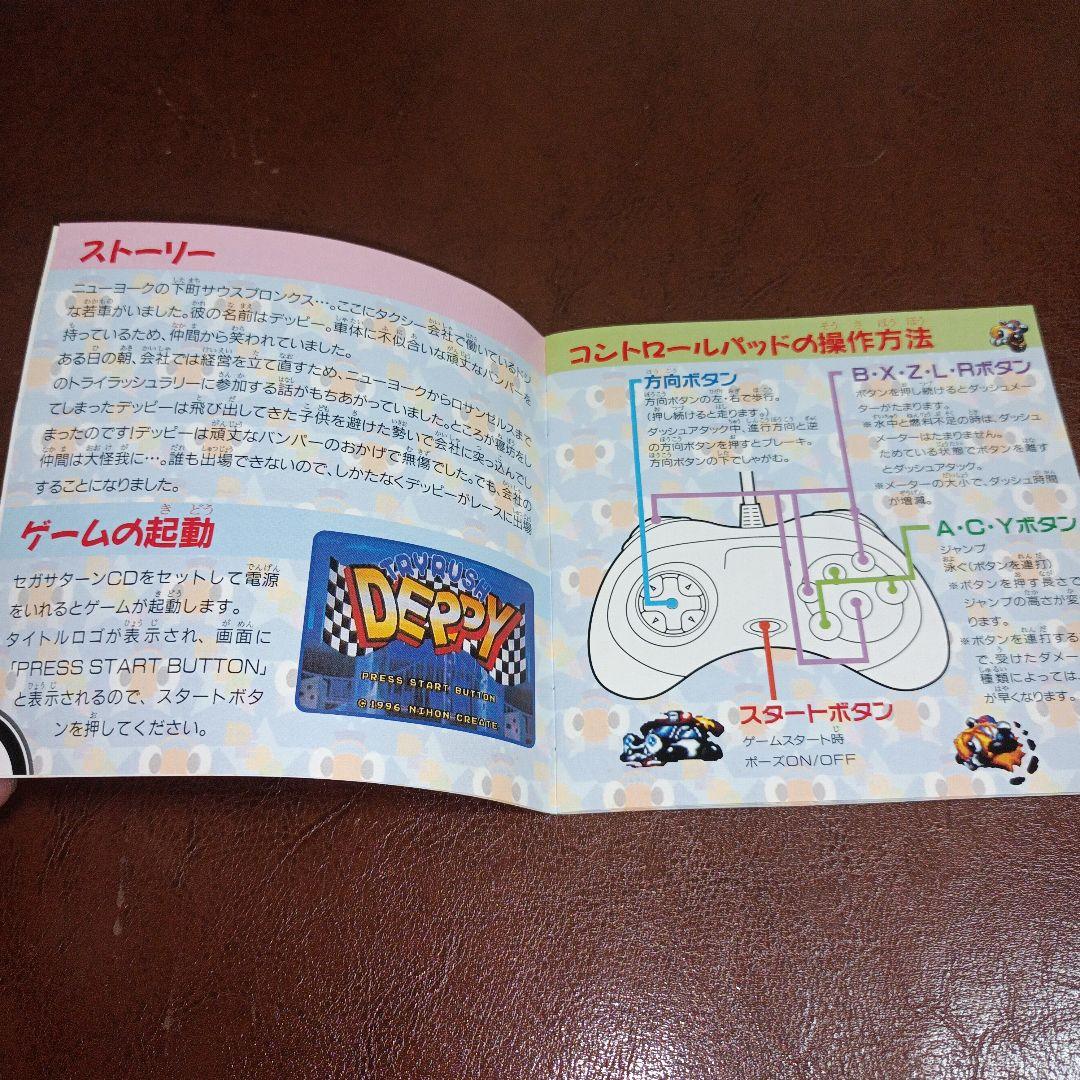 ストーリー
ニューヨークの下町サウスブロンクス…。ここにタクシー会社で働いているドジ
な若車がいました。彼の名前はデッピー。車体に不似合いな頑丈なバンパーを
持っているため、仲間から笑われていました。
ある日の朝、会社では経営を立て直すため、ニューヨークからロサンゼルスまで
のトライラッシュラリーに参加する話がもちあがっていました。ところが寝坊をし
てしまったデッピーは飛び出してきた子供を避けた勢いで会社に突っ込んでし
まったのです!デッピーは頑丈なバンパーのおかげで無傷でした。でも、会社の
仲間は大怪我に…。誰も出場できないので、しかたなくデッピーがレースに出場
することになりました。
ゲームの起動
セガサターンCDをセットして電源
をいれるとゲームが起動します。
タイトルロゴが表示され、画面に
「PRESS START BUTTON」
と表示されるので、スタートボタ
ンを押してください。
TRYRUSH
DEPPY
PRESS START BUTTON
©1996 NIHON CREATE
コントロールパッドの操作方法
方向ボタン
方向ボタンの左・右で歩行。
(押し続けると走ります。)
ダッシュアタック中、進行方向と逆
の方向ボタンを押すとブレーキ。
方向ボタンの下でしゃがむ。
B・X・Z・L・Rボタン
ボタンを押し続けるとダッシュメー
ターがたまります。
※水中と燃料不足の時は、ダッシュ
メーターはたまりません。
ためている状態でボタンを離す
とダッシュアタック。
※メーターの大小で、ダッシュ時間
が増減。
A・C・Yボタン
ジャンプ
泳ぐ(ボタンを連打)
※ボタンを押す長さで
ジャンプの高さが変
ります。
※ボタンを連打する
で、受けたダメー
種類によっては、
が早くなります。
スタートボタン
ゲームスタート時
ポーズON/OFF